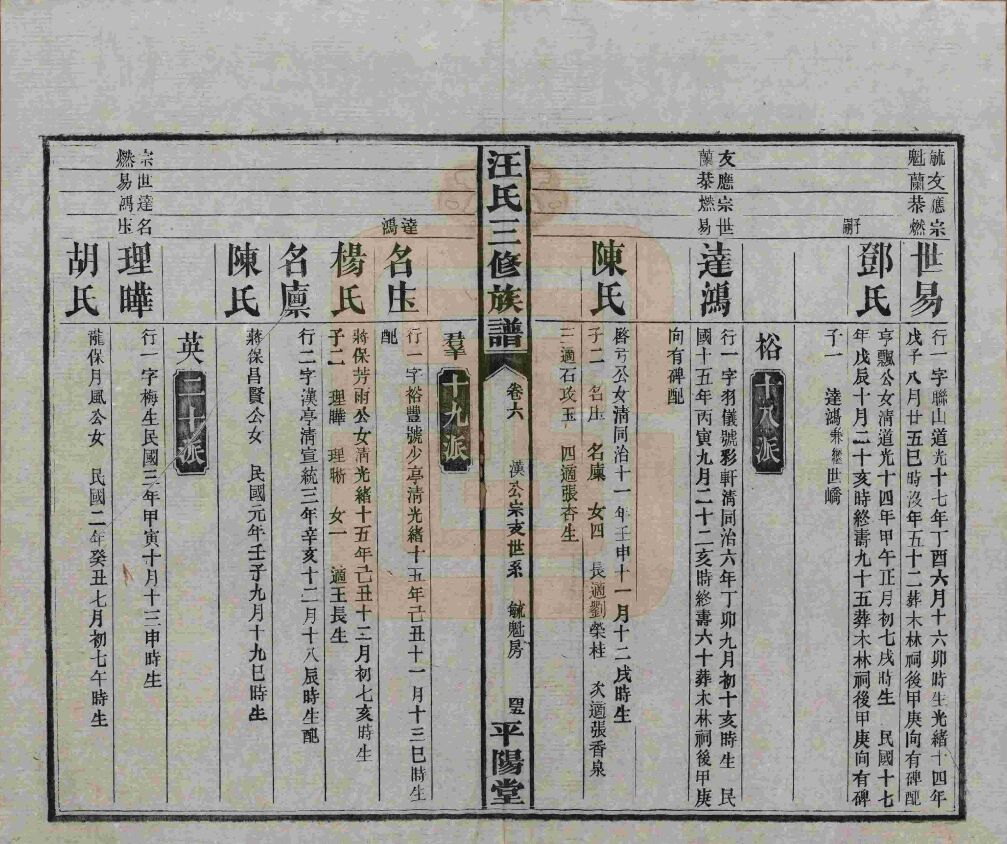 毓友應宗
魁蘭恭燃
世易
行一字聯山道光十七年丁酉六月十六卯時生光緒十四年
戊子八月廿五巳時沒年五十二葬木林祠後甲庚向有碑配
子嗣
鄧氏
亨飄公女清道光十四年甲午正月初七戌時生 民國十七
年戊辰十月二十亥時終壽九十五葬木林祠後甲庚向有碑
子一 達鴻兼繼世嶠
裕 十八派
友應宗世
蘭恭燃易
達鴻
行一字羽儀號彩軒清同治六年丁卯九月初十亥時生 民
國十五年丙寅九月二十二亥時終壽六十葬木林祠後甲庚
向有碑配
陳氏
啓弓公女清同治十一年壬申十一月十二戌時生
子二 名庒 名廩 女四 長適劉榮桂 次適張香泉
三適石攻玉 四適張杏生
汪氏三修族譜 卷六 漢公宗亥世系 毓魁房 平陽堂
羣 十九派
達鴻
名庒
行一字裕豐號少亭清光緒十五年己丑十一月十三巳時生
配
楊氏
蔣保芳雨公女清光緒十五年己丑十二月初七亥時生
子二 理曄 理晰 女一 適王長生
名廩
行二字漢亭清宣統三年辛亥十二月十八辰時生配
陳氏
蔣保昌賢公女 民國元年壬子九月十九巳時生
英 二十派
宗世達名
燃易鴻庒
理曄
行一字梅生民國三年甲寅十月十三申時生
胡氏
龍保月風公女 民國二年癸丑七月初七午時生